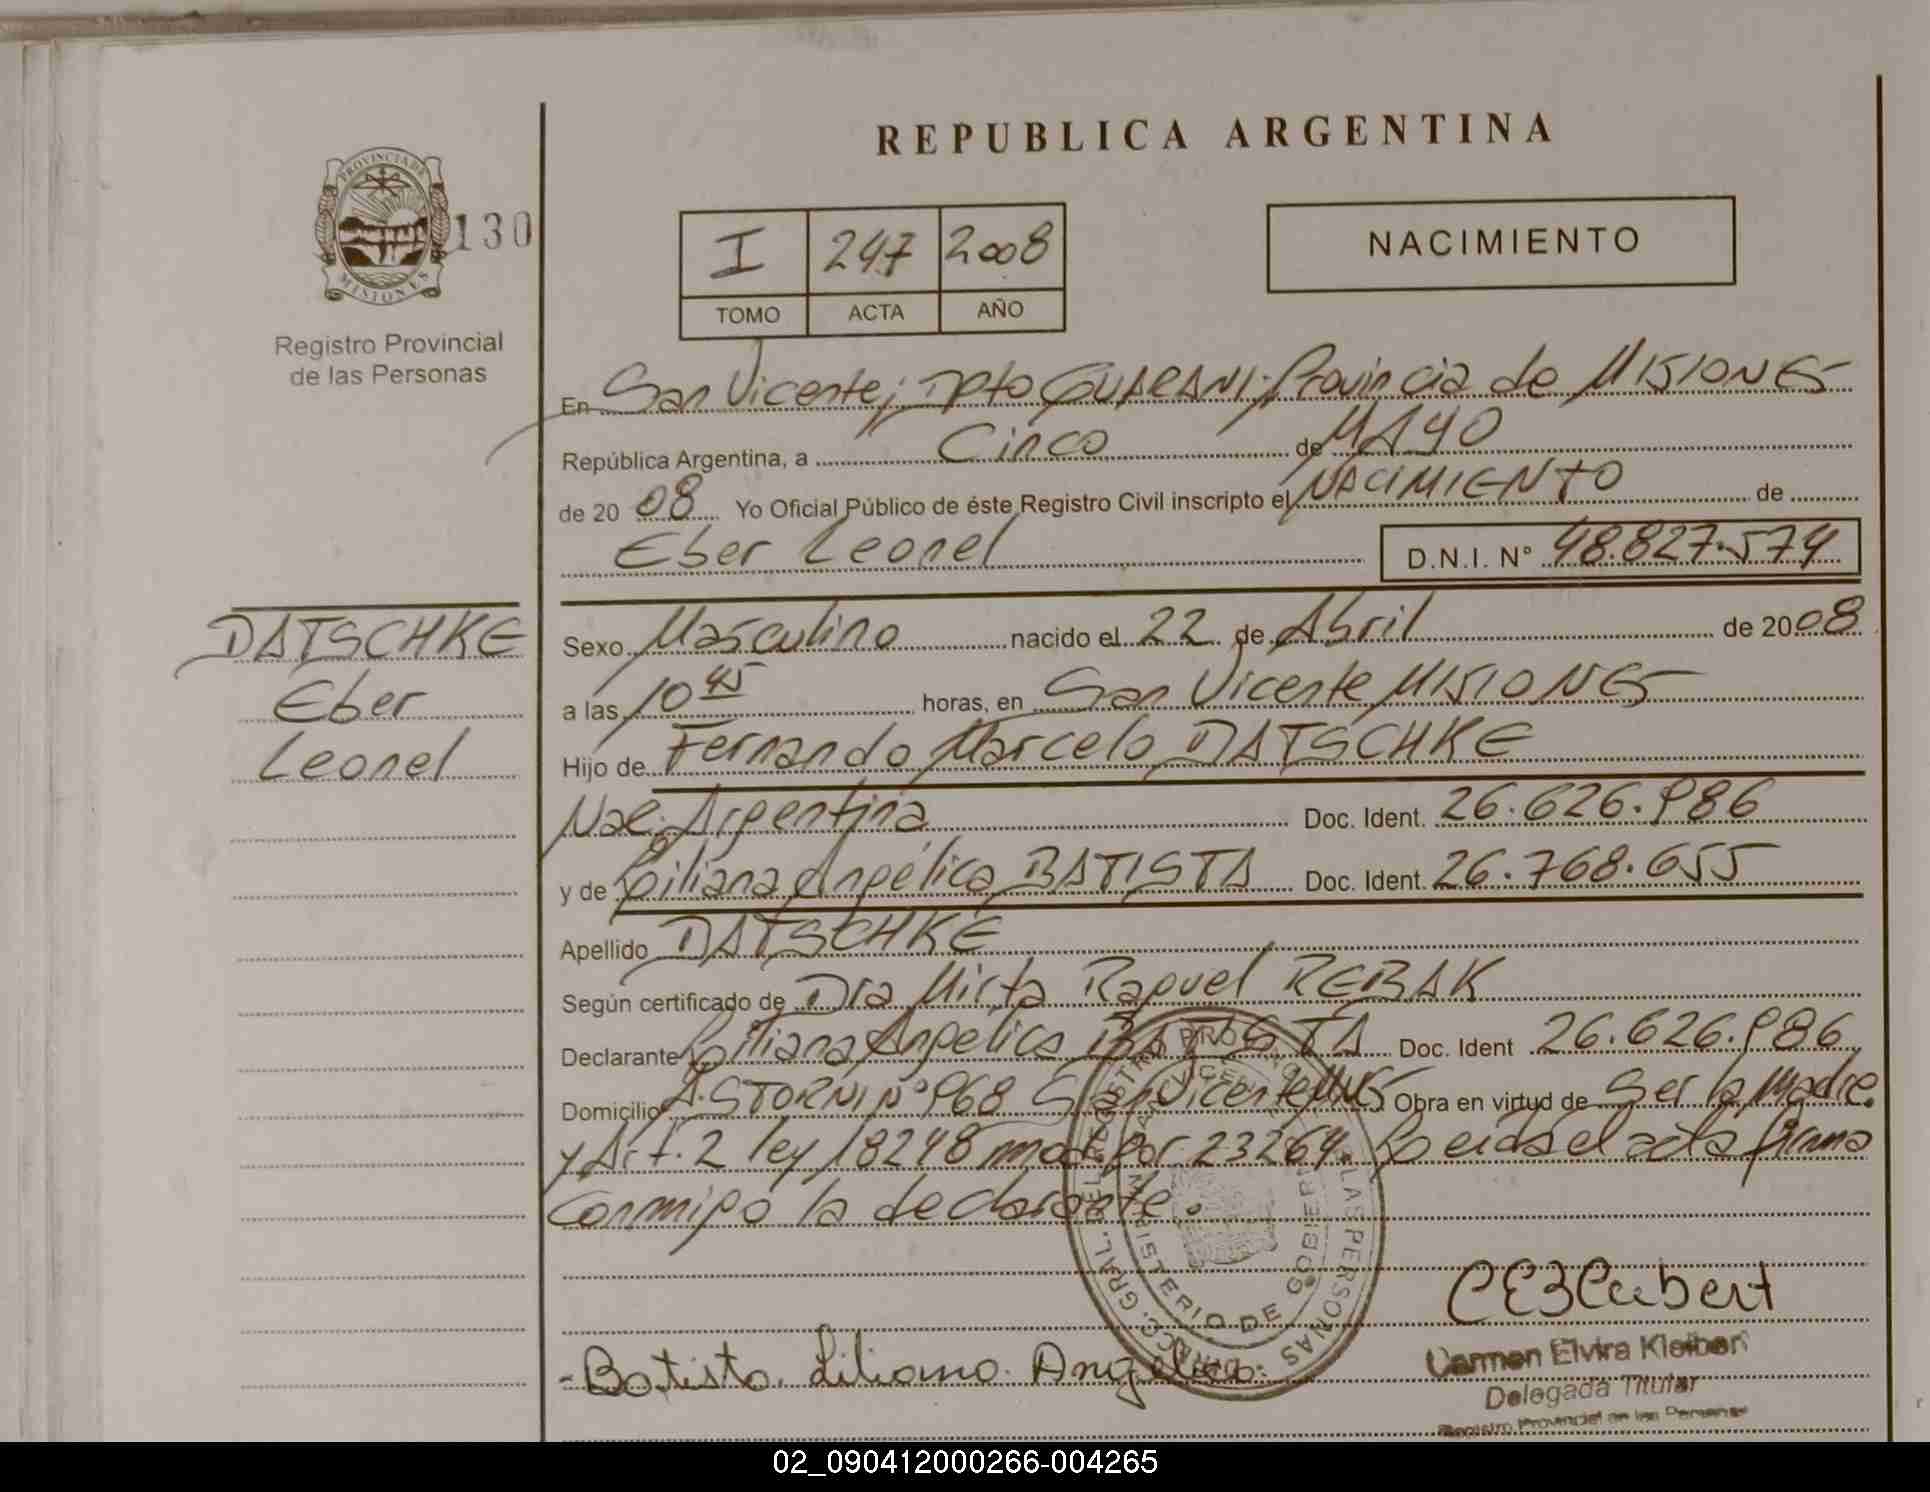 REPUBLICA ARGENTINA
PROVINCIA DE
MISIONES
130
Registro Provincial
de las Personas
I 247 2008
TOMO ACTA AÑO
NACIMIENTO
En San Vicente; Dpto GUARANI; Provincia de MISIONES
República Argentina, a Cinco de MAYO
de 2008 Yo Oficial Público de éste Registro Civil inscripto el NACIMIENTO de
Eber Leonel D.N.I. N° 48.827.574
DATSCHKE
Eber
Leonel
Sexo Masculino nacido el 22 de Abril de 2008
a las 10 45 horas, en San Vicente MISIONES
Hijo de Fernando Marcelo DATSCHKE
Nac. Argentina Doc. Ident. 26.626.986
y de Liliana Angélica BATISTA Doc. Ident. 26.768.655
Apellido DATSCHKE
Según certificado de Dra Mirta Raquel REBAK
Declarante Liliana Angelica BATISTA Doc. Ident 26.626.986
Domicilio A. STORNI N° 968 San Vicente Mnes Obra en virtud de Ser la Madre.
y Art. 2 ley 18248 mod. por 23264. Leída el acta firma
conmigo la declarante.
MINISTERIO DE GOBIERNO
LAS PERSONAS
CEKleibert
- Batista. Liliana. Angelica.
Carmen Elvira Kleibert
Delegada Titular
Registro Provincial de las Personas
02_090412000266-004265